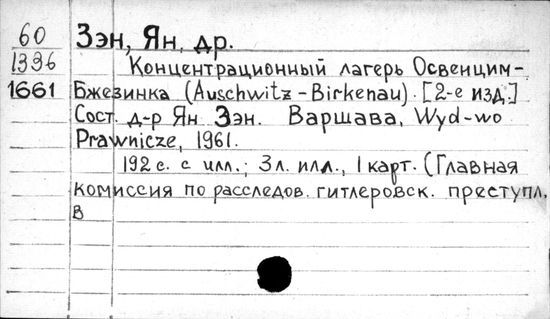 60
1336
1661
Зэн, Ян, др.
Концентрационный лагерь Освенцим-
Бжезинка (Auschwitz-Birkenau). [2-е изд.]
Сост. д-р Ян Зэн. Варшава, Wyd-wo
Prawnicze, 1961.
192 с. с илл.; 3 л. илл., 1 карт. (Главная
комиссия по расследов. гитлеровск. преступл.
в